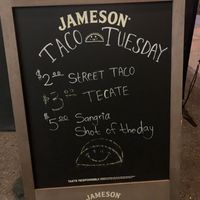 JAMESON
TACO TUESDAY
$2.00 STREET TACO
$3.00 TECATE
$5.00 Sangria
Shot of the day
TASTE RESPONSIBLY
JAMESON